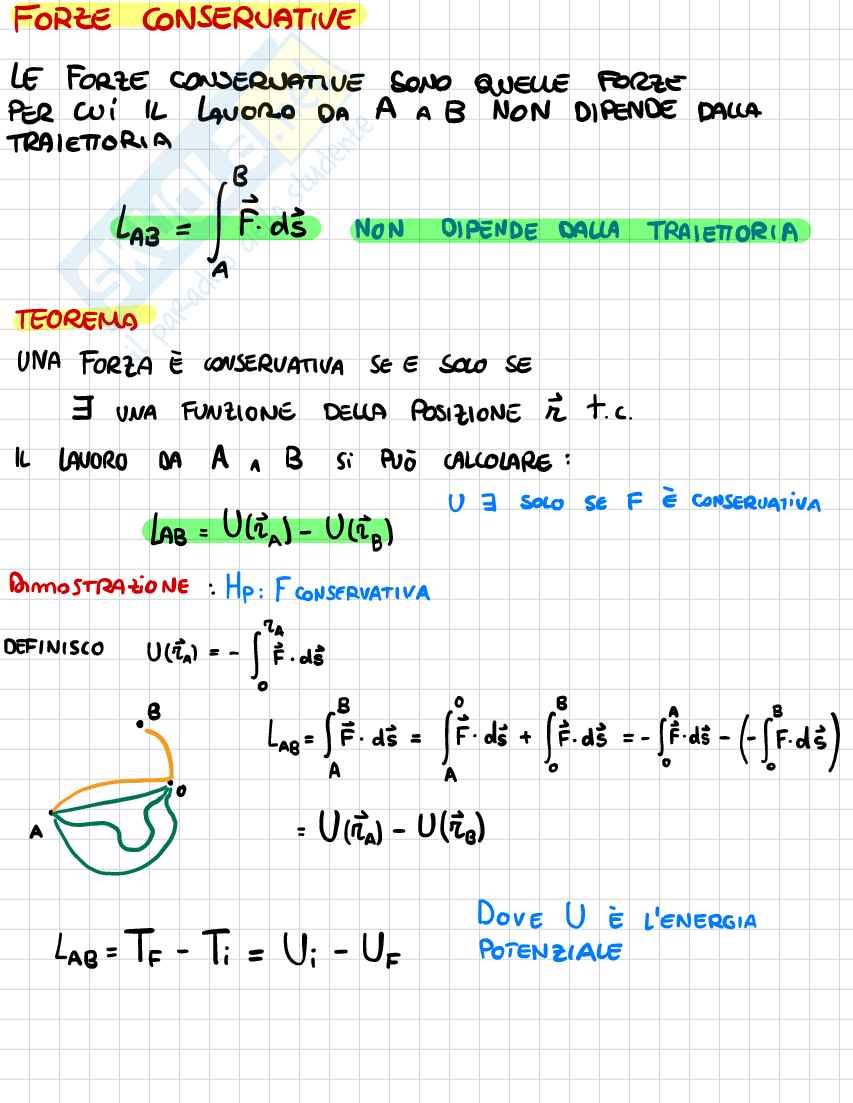 FORZE CONSERVATIVE
LE FORZE CONSERVATIVE SONO QUELLE FORZE
PER CUI IL LAVORO DA A A B NON DIPENDE DALLA
TRAIETTORIA
L_AB = ∫_A^B F⃗ · ds⃗ NON DIPENDE DALLA TRAIETTORIA
TEOREMA
UNA FORZA È CONSERVATIVA SE E SOLO SE
∃ UNA FUNZIONE DELLA POSIZIONE r⃗ t.c.
IL LAVORO DA A A B SI PUÒ CALCOLARE :
U ∃ SOLO SE F È CONSERVATIVA
L_AB = U(r⃗_A) - U(r⃗_B)
DIMOSTRAZIONE : HP: F CONSERVATIVA
DEFINISCO U(r⃗_A) = - ∫_0^{r_A} F⃗ · ds⃗
B
L_AB = ∫_A^B F⃗ · ds⃗ = ∫_A^0 F⃗ · ds⃗ + ∫_0^B F⃗ · ds⃗ = - ∫_0^A F⃗ · ds⃗ - (- ∫_0^B F · ds⃗)
O
A
= U(r⃗_A) - U(r⃗_B)
DOVE U È L'ENERGIA
POTENZIALE
L_AB = T_F - T_i = U_i - U_F
SKUOLA.net
il paradiso dello studente